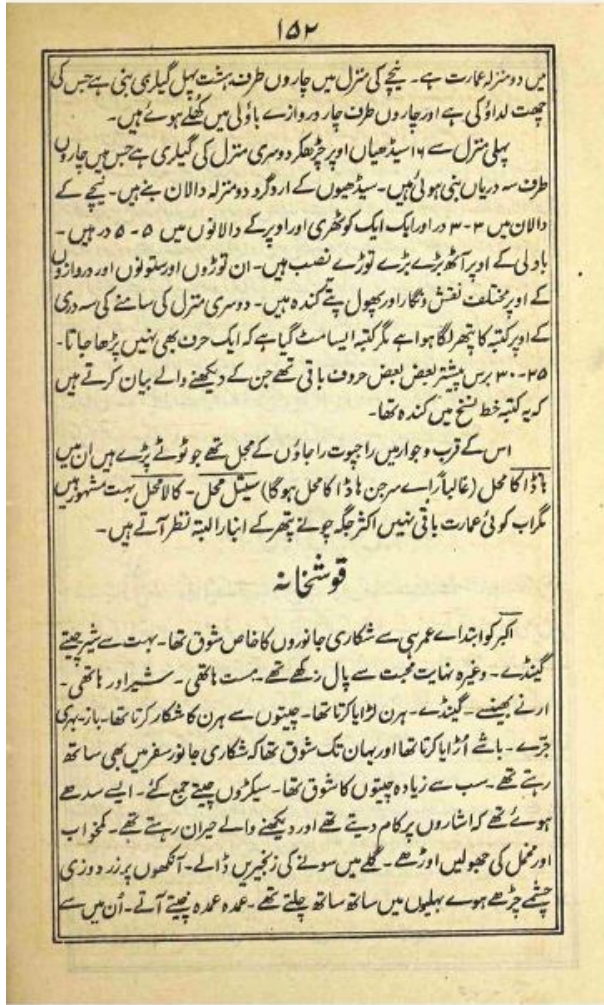 ۱۵۲
میں دو منزلہ عمارت ہے۔ نیچے کی منزل میں چاروں طرف ہشت پہل گیلری بنی ہے جس کی
چھت لداؤ کی ہے اور چاروں طرف چار دروازے باؤلی میں کھلے ہوئے ہیں۔
پہلی منزل سے ۱۶ سیڈھیاں اوپر چڑھکر دوسری منزل کی گیلری ہے جس میں چاروں
طرف سہ دریاں بنی ہوئی ہیں۔ سیڈھیوں کے اردگرد دو منزلہ دالان بنے ہیں۔ نیچے کے
دالان میں ۳-۳ در اور ایک ایک کوٹھری اور اوپر کے دالانوں میں ۵-۵ در ہیں۔
باولی کے اوپر آٹھ بڑے بڑے توڑے نصب ہیں۔ ان توڑوں اور ستونوں اور دروازوں
کے اوپر مختلف نقش ونگار اور پھول پتے کندہ ہیں۔ دوسری منزل کی سامنے کی سہ دری
کے اوپر کتبہ کا پتھر لگا ہوا ہے مگر کتبہ ایسا مٹ گیا ہے کہ ایک حرف بھی نہیں پڑھا جاتا۔
۲۵-۳۰ برس پیشتر بعض بعض حروف باقی تھے جن کے دیکھنے والے بیان کرتے ہیں
کہ یہ کتبہ خط نسخ میں کندہ تھا۔
اس کے قرب وجوار میں راجپوت راجاؤں کے محل تھے جو ٹوٹے پڑے ہیں ان میں
ہاڈا کا محل (غالباً رائے سرجن ہاڈا کا محل ہوگا) سیتل محل۔ کالا محل بہت مشہور ہیں
مگر اب کوئی عمارت باقی نہیں اکثر جگہ چونے پتھر کے انبار البتہ نظر آتے ہیں۔
قوشخانہ
اکبر کو ابتداے عمر ہی سے شکاری جانوروں کا خاص شوق تھا۔ بہت سے شیر چیتے
گینڈے۔ وغیرہ نہایت محبت سے پال رکھے تھے۔ مست ہاتھی۔ شیر اور ہاتھی۔
ارنے بھینسے۔ گینڈے۔ ہرن لڑایا کرتا تھا۔ چیتوں سے ہرن کا شکار کرتا تھا۔ باز۔ بہری
جرے۔ باشے اُڑایا کرتا تھا اور یہاں تک شوق تھا کہ شکاری جانور سفر میں بھی ساتھ
رہتے تھے۔ سب سے زیادہ چیتوں کا شوق تھا۔ سیکڑوں چیتے جمع کئے۔ ایسے سدھے
ہوئے تھے کہ اشاروں پر کام دیتے تھے اور دیکھنے والے حیران رہتے تھے۔ کمخواب
اور مخمل کی جھولیں اوڑھے۔ گلے میں سونے کی زنجیریں ڈالے۔ آنکھوں پر زردوزی
چشمے چڑھے ہوے بہلیوں میں ساتھ ساتھ چلتے تھے۔ عمدہ عمدہ چیتے آتے۔ اُن میں سے